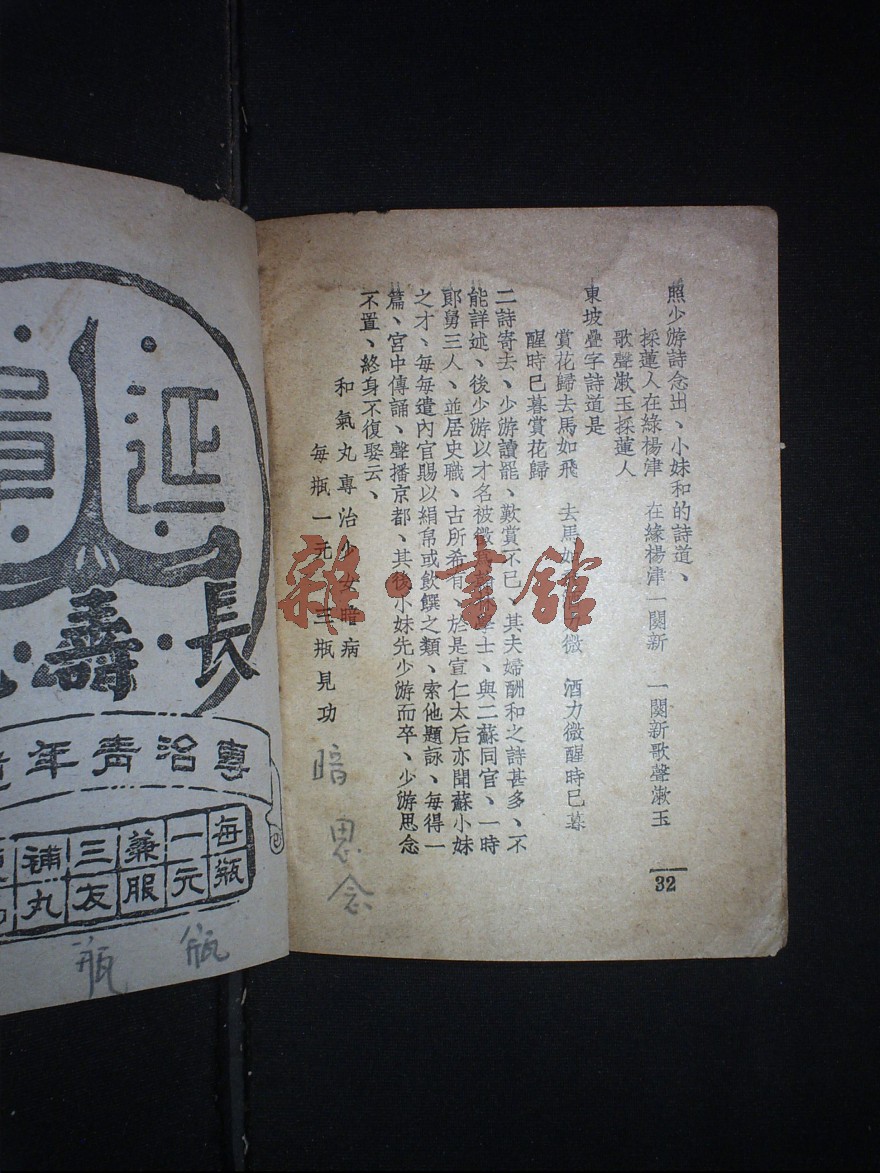 照少游詩念出、小妹和的詩道、
採蓮人在綠楊津 在綠楊津一闋新 一闋新歌聲漱玉
歌聲漱玉採蓮人
東坡疊字詩道是
賞花歸去馬如飛 去馬如 力微 酒力微醒時已暮
醒時已暮賞花歸
二詩寄去、少游讀罷、歎賞不已、其夫婦酬和之詩甚多、不
能詳述、後少游以才名被徵 學士、與二蘇同官、一時
郞舅三人、並居史職、古所希有、於是宣仁太后亦聞蘇小妹
之才、每每遣內官賜以絹帛或飲饌之類、索他題詠、每得一
篇、宮中傳誦、聲播京都、其後小妹先少游而卒、少游思念
不置、終身不復娶云、
和氣丸專治少女暗病
每瓶一元 三瓶見功
暗 思念
32
雜·書館
延壽
長壽
專治青年
每瓶
一元
兼服
三友
補丸
瓶 瓶